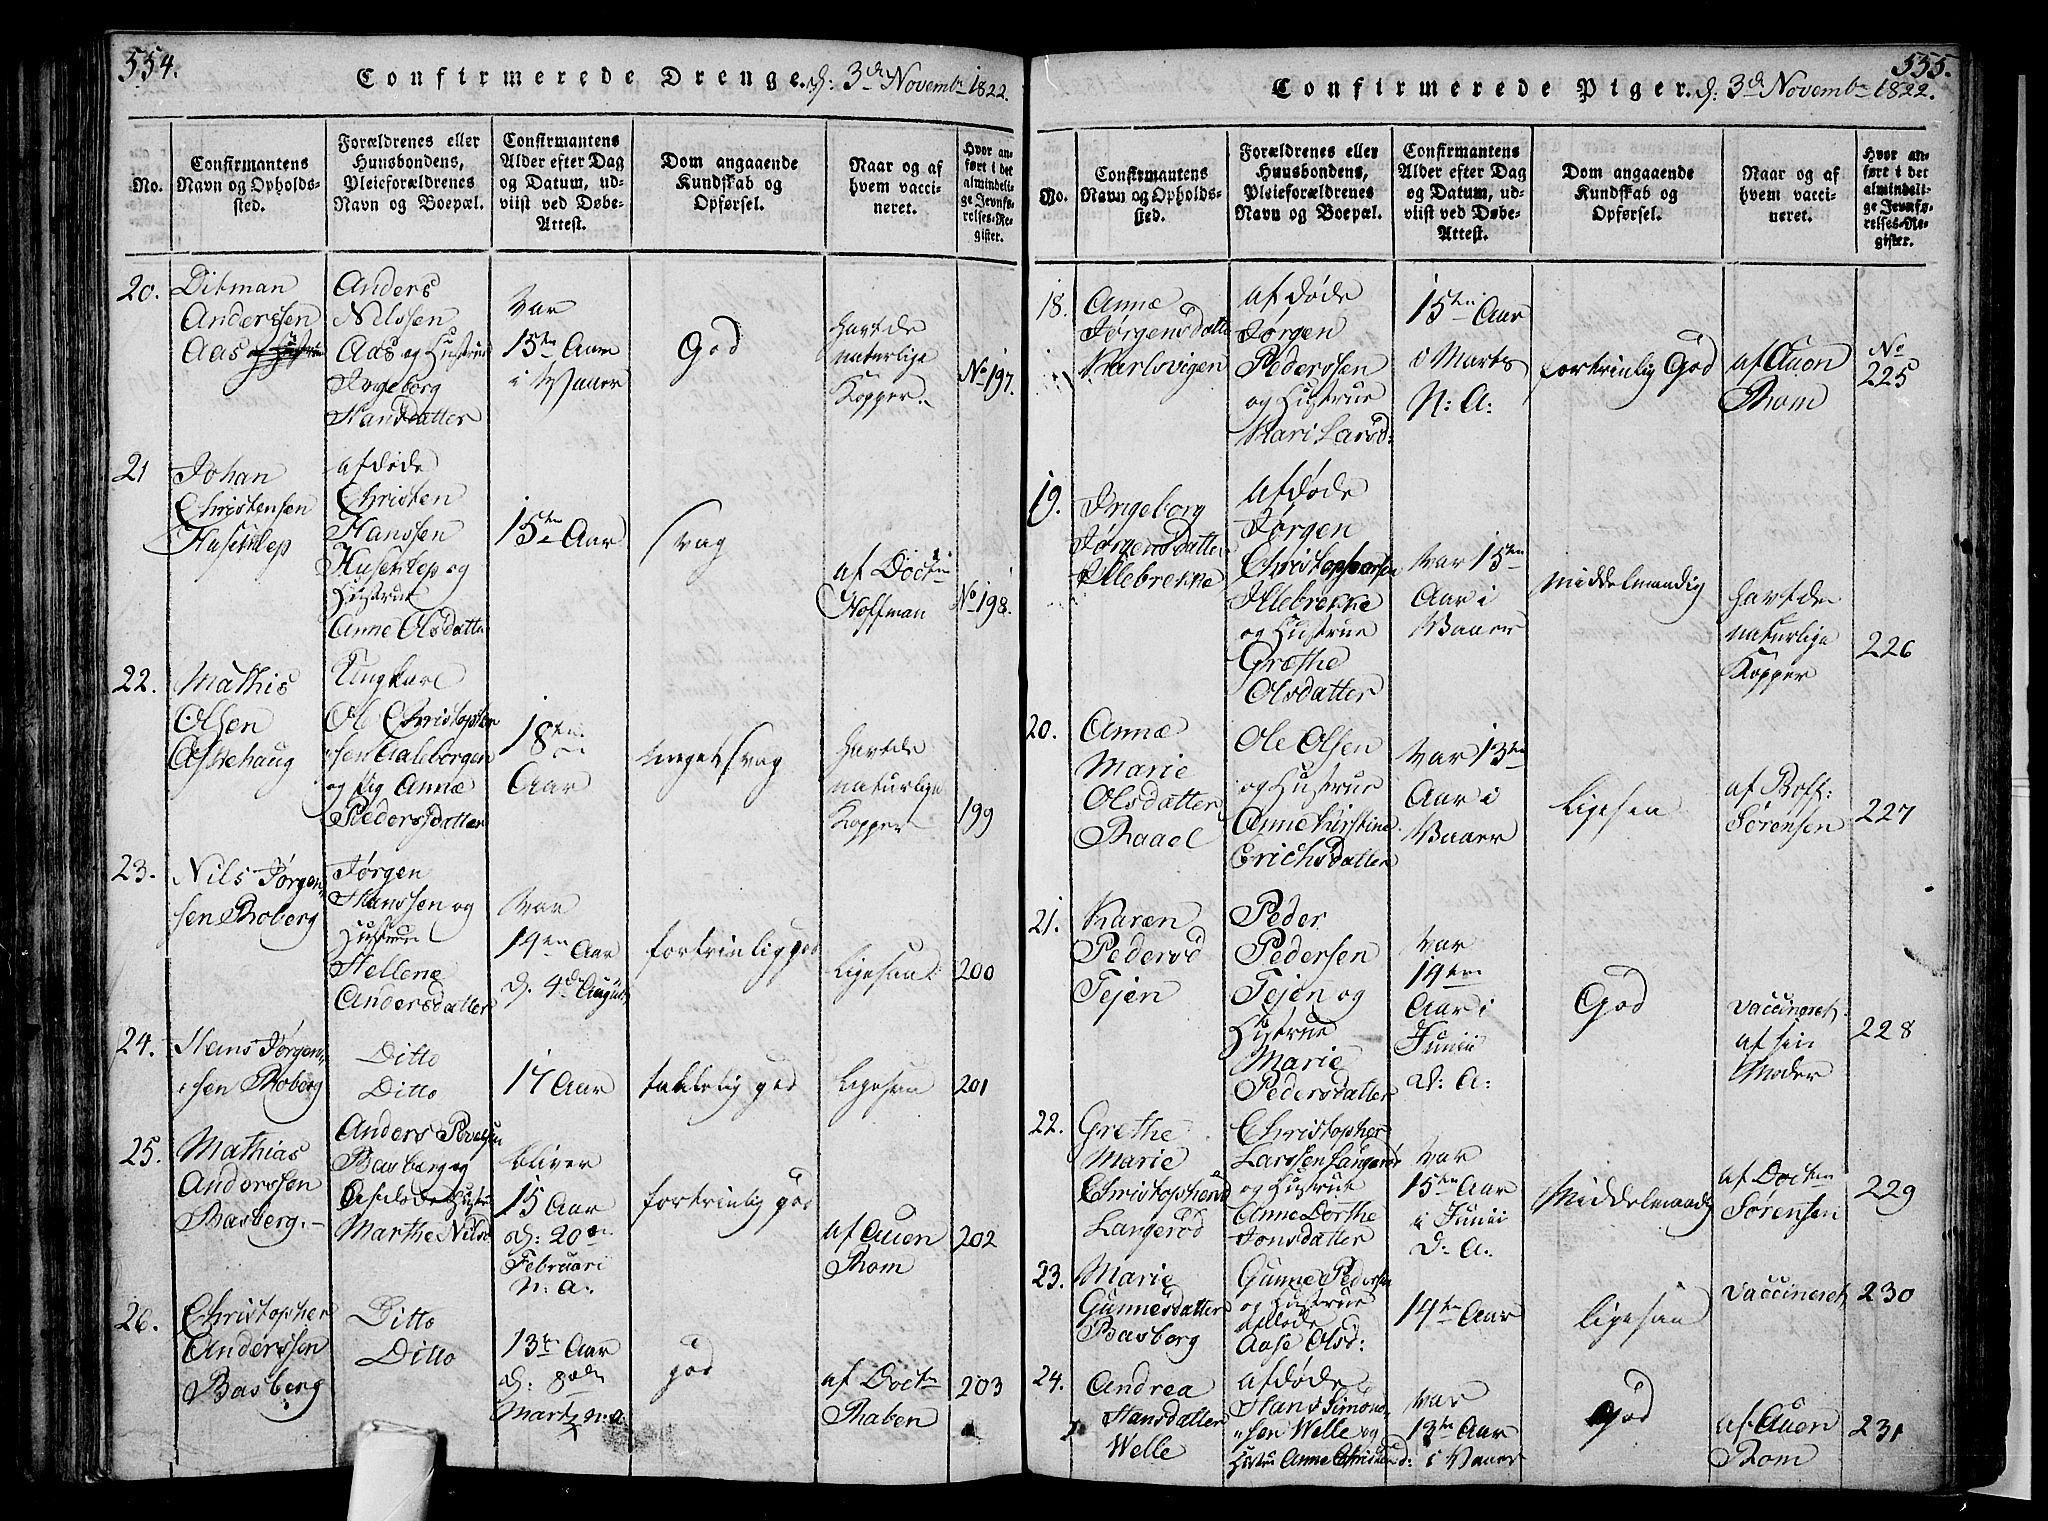 554.
Confirmerede Drenge. d: 3de Novembr 1822.
No.
Confirmantens
Navn og Opholds-
sted.
Forældrenes eller
Huusbondens,
Pleieforældrenes
Navn og Boepæl.
Confirmantens
Alder efter Dag
og Datum, ud-
viist ved Døbe-
Attest.
Dom angaaende
Kundskab og
Opførsel.
Naar og af
hvem vacci-
neret.
Hvor an-
ført i det
almindeli-
ge Jevnfø-
relses-Re-
gister.
20.
Ditman
Anderssen
Aas
Anders
Nilssen
Aas og Hustrue
Ingeborg
Hansdatter
var
15ten Aar
i Vaaer
God
Havt de
naturlige
Kopper.
No 197.
21
Johan
Christensen
Huseklep
afdøde
Christen
Hanssen
Huseklep og
Hustrue
Anne Olsdatter
15ten Aar
svag
af Doctr
Hoffman
No 198.
22.
Mathis
Olsen
Askehaug
Ungkarl
Ole Christopher
sen Aaleborgen
og Pig Annæ
Pedersdatter
18ten
Aar
meget svag
Havt de
naturlige
Kopper
199
23.
Nils Jørgen-
sen Roberg
Jørgen
Hanssen og
Hustrue
Hellene
Andersdatter
var
14ten Aar
d. 4de August
fortrinlig god
Ligesaa
200
24.
Hans Jørgen-
sen Roberg
Ditto
Ditto
17 Aar
taalelig god
Ligesaa
201
25.
Mathias
Anderssen
Basberg.
Anders Povelsen
Basberg og
Hustrue
Marthe Nilsd
bliver
15 Aar
d: 20de
Februari
n. a.
fortrinlig god
af Auen
Rom
202
26.
Christopher
Anderssen
Basberg
Ditto
Ditto
13te Aar
d: 8de
Martz n. a
god
af Doctr
Raben
203
555.
Confirmerede Piger. d: 3de Novembr 1822.
No.
Confirmantens
Navn og Opholds-
sted.
Forældrenes eller
Huusbondens,
Pleieforældrenes
Navn og Boepæl.
Confirmantens
Alder efter Dag
og Datum, ud-
viist ved Døbe-
Attest.
Dom angaaende
Kundskab og
Opførsel.
Naar og af
hvem vacci-
neret.
Hvor an-
ført i det
almindeli-
ge Jevnfø-
relses-Re-
gister.
18.
Annæ
Jørgensdatter
Karlsvigen
afdøde
Jørgen
Pederssen
og Hustrue
Kari Larsd:
15ten Aar
i Marts
N: A:
fortrinlig God
af Auen
Rom
No
225
19.
Ingeborg
Jørgensdatter
Illebrekke
afdøde
Jørgen
Christophersen
Illebrekke
og Hustrue
Grethe
Olsdatter
var 15ten
Aar i
Vaaer
Middelmaadig
havt de
naturlige
Kopper
226
20.
Annæ
Marie
Olsdatter
Raael
Ole Olsen
og Hustrue
Anne Kirstine
Erichsdatter
var 13ten
Aar i
Vaaer
Ligesaa
af Rolf:
Sørensen
227
21.
Karen
Pedersd
Tejen
Peder
Pedersen
Tejen og
Hustrue
Marie
Pedersdatter
var
14ten
Aar i
Junii
d: A:
God
vaccineret
af sin
Moder
228
22.
Grethe
Marie
Christophersd
Langerød
Christopher
Larssen Langerød
og Hustrue
Anne Dorthe
Jonsdatter
var
15ten Aar
i Junii
d: A:
Middelmaadig
af Docten
Sørensen
229
23.
Marie
Gunnesdatter
Basberg
Gunne Pedersen
og Hustrue
afdøde
Aase Olsd:
14ten Aar
ligesaa
vaccineret
230
24.
Andrea
Hansdatter
Welle
afdøde
Hans Simons-
sen Welle og
Hustru Anne Christensd:
var
13ten Aar
i Vaaer
God
af Auen
Rom
231